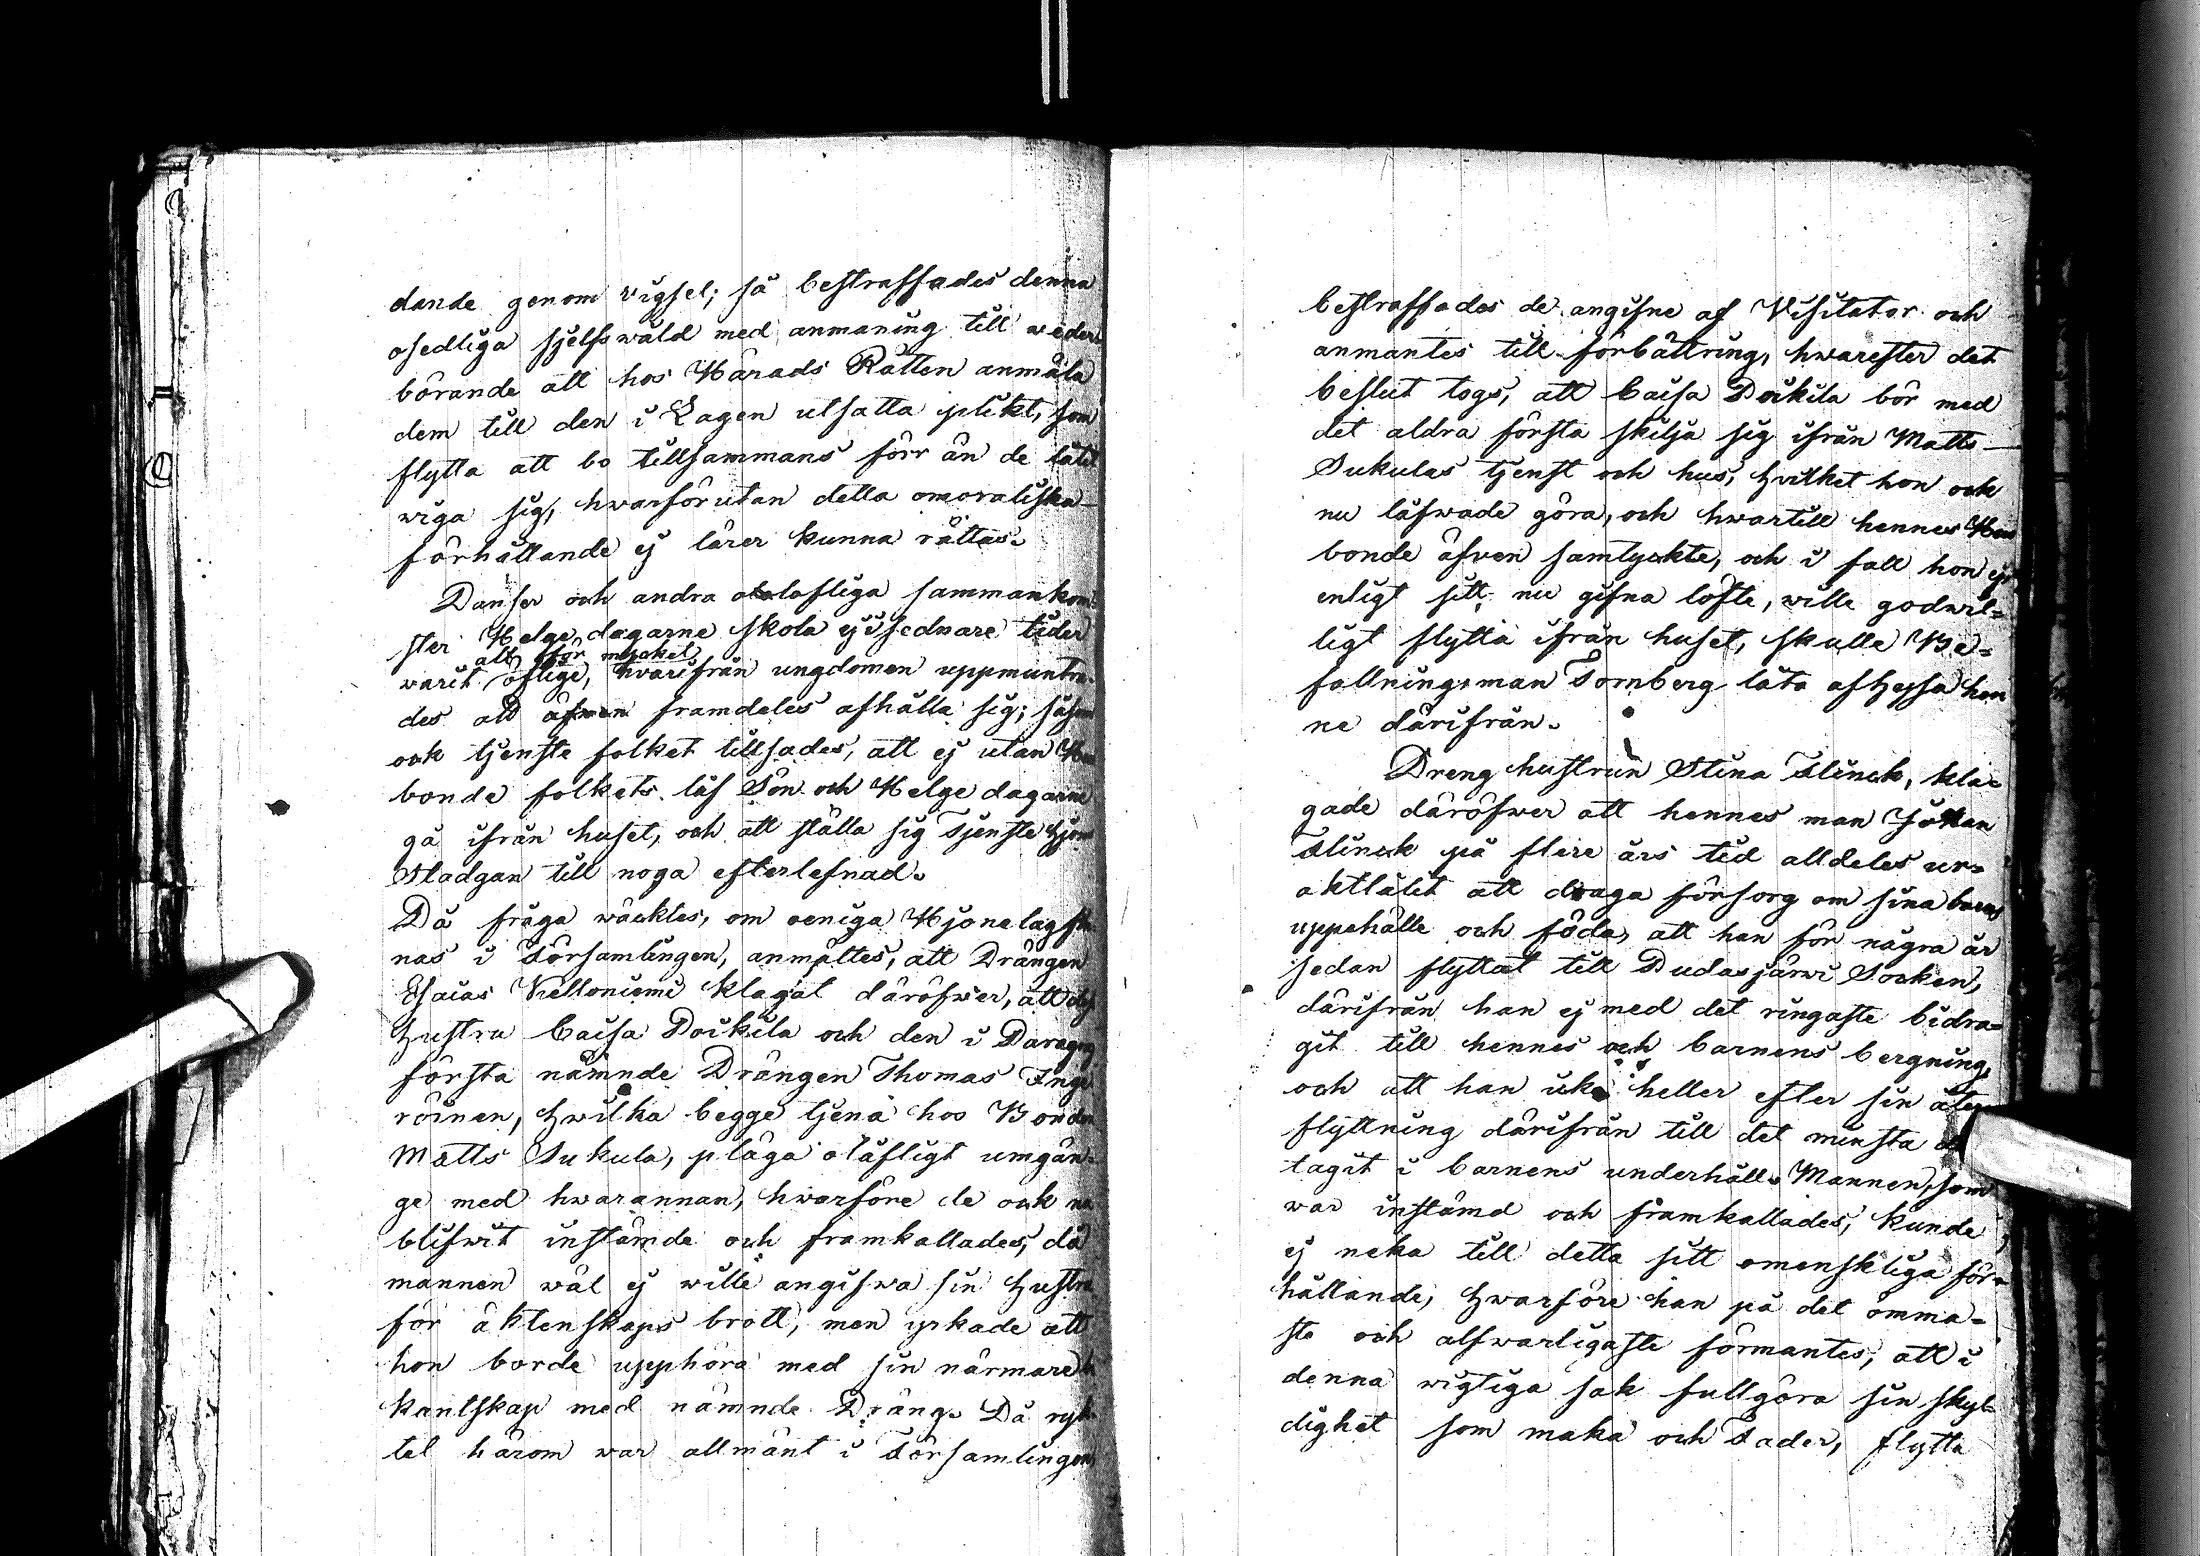 dande genom vigsel; så bestraffades denna
osedliga sjelfswåld med anmaning till weder-
börande att hos Härads Rätten anmäla
dem till den i Lagen utsatta plikt, som
flytta att bo tillsammans förr än de låtit
wiga sig, hwarförutan detta omoraliska
förhållande ej lärer kunna rättas.
Danser och andra olofliga sammankom-
ster Helge dagarne skola ej i sednare tider
allt för mycket
warit öflige, hvarifrån ungdomen uppmuntra-
des att äfwen framdeles afhålla sig; såsom
ock tjenste folket tillsades, att ej utan Hus
bonde folkets lof Sön och Helge dagarne
gå ifrån huset, och att ställa sig Tjenste hjons
Stadgan till noga efterlefnad.
Då fråga wäcktes, om oeniga Hjonelag
nas i Församlingen, anmältes, att Drängen
Esaias Kelloniemi klagat däröfwer, att dess
hustru Caisa Poikila och den i
första nämnde Drängen Thomas Inge
roinen, hwilka begge tjena hos Bonden
Matts Sukula, pläga olåfligt umgän-
ge med hwarannan, hwarföre de ock nu
blifwit instämde och framkallades, då
mannen wäl ej wille angifwa sin hustru
för äktenskaps brott, men yrkade att
hon borde upphöra med sin närmare
kantskap med nämnde Dräng. Då ryk-
tet härom war allmänt i Församlingen
bestraffades de angifne af Visitator och
anmantes till förbättring, hwarefter det
beslut togs, att Caisa Poikila bör med
det aldra första skilja sig ifrån Matts
Sukulas tjenst och hus, hvilket hon ock
nu låfwade göra, och hwartill hennes Hus
bonde äfven samtyckte, och i fall hon ej
enligt sitt nu gifna löfte, wille godwil-
ligt flytta ifrån huset, skulle Be-
fallningsman Tornberg låta afhysa hen
ne därifrån.
Dreng hustrun Stina Flinck, kla-
gade däröfwer att hennes man Johan
Flinck på flere års tid alldeles ur-
aktlåtit att draga försorg om sina barns
uppehälle och föda, att han för några år
sedan flyttat till Pudasjärwi Socken,
därifrån han ej med det ringaste bidra-
git till hennes och barnens bergning,
och att han icke heller efter sin åter
flyttning därifrån till det minsta
tagit i barnens underhåll. Mannen, som
war instämd och framkallades, kunde
ej neka till detta sitt omenskliga för-
hållande, hwarföre han på det ömma-
ste och alfwarligaste förmantes, att i
denna wigtiga sak fullgöra sin skyl-
dighet som maka och Fader, flytta